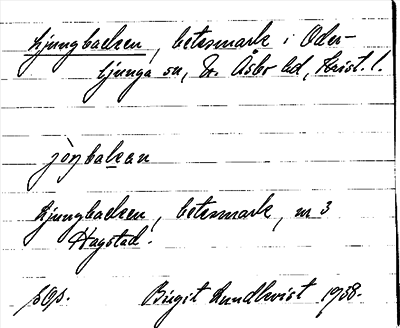 Ljungbacken, betesmark i Oder-
ljunga sn, V. Åsbo hd, Krist. l.
jòŋbakan
Ljungbacken, betesmark, nr 3
Hagstad.
Birgit Lundkvist 1938.